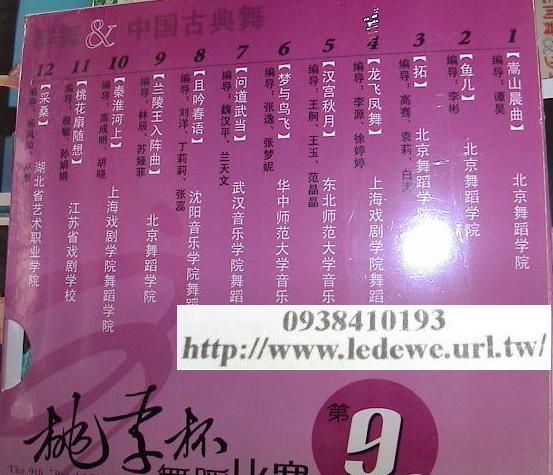 群舞 & 中国古典舞
1 【嵩山晨曲】 北京舞蹈学院
编导：谭昊
2 【鱼儿】 北京舞蹈学院
编导：李彬
3 【拓】 北京舞蹈学院
编导：高骞、袁莉、白涛
4 【龙飞凤舞】 上海戏剧学院舞蹈
编导：李源、徐婷婷
5 【汉宫秋月】 东北师范大学音乐
编导：王舸、王玉、范晶晶
6 【梦与鸟飞】 华中师范大学音乐
编导：张逸、张梦妮
7 【问道武当】 武汉音乐学院舞蹈
编导：魏汉平、兰天文
8 【且吟春语】 沈阳音乐学院舞
编导：刘洋、丁莉莉、张蕊
9 【兰陵王入阵曲】 北京舞蹈学院
编导：林辰、苏娅菲
10 【秦淮河上】 上海戏剧学院舞蹈学院
编导：高成明、胡晓
11 【桃花扇随想】 江苏省戏剧学校
编导：殷敏、孙娟娟
12 【采桑】 湖北省艺术职业学院
编导：
0938410193
http://www.ledewe.url.tw/
桃李杯
第9
舞蹈比赛
The 9th